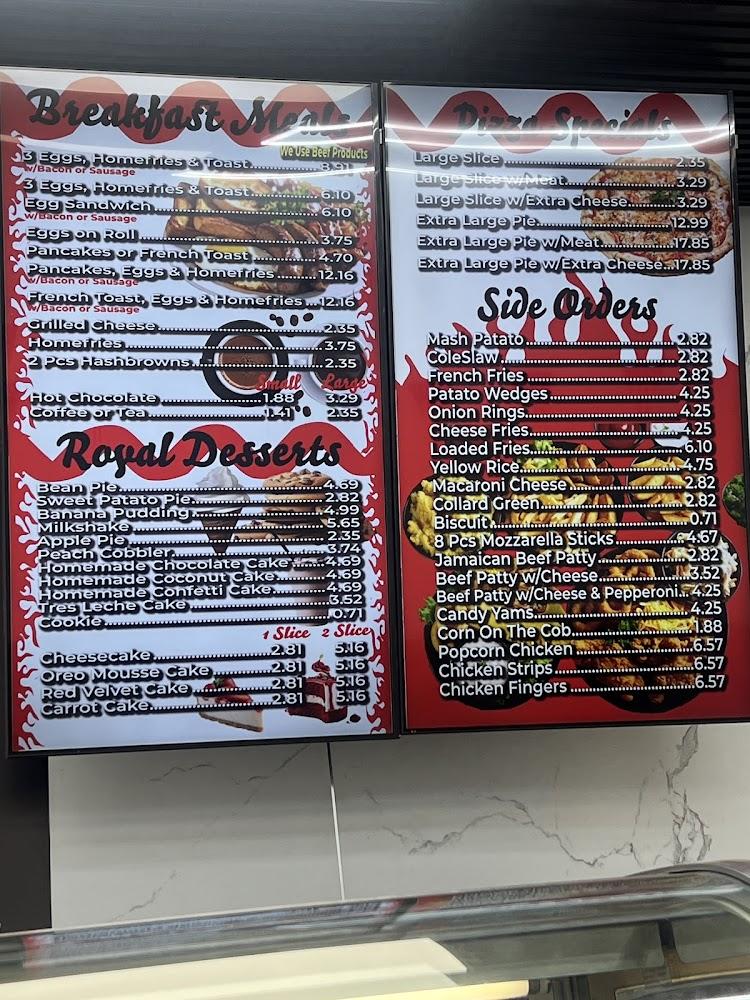 Breakfast Meals
We Use Beef Products
3 Eggs, Homefries & Toast 8.91
w/Bacon or Sausage
3 Eggs, Homefries & Toast 6.10
Egg Sandwich 6.10
w/Bacon or Sausage
Eggs on Roll 3.75
Pancakes or French Toast 4.70
Pancakes, Eggs & Homefries 12.16
w/Bacon or Sausage
French Toast, Eggs & Homefries 12.16
w/Bacon or Sausage
Grilled Cheese 2.35
Homefries 3.75
2 Pcs Hashbrowns 2.35
Small Large
Hot Chocolate 1.88 3.29
Coffee or Tea 1.41 2.35
Royal Desserts
Bean Pie 4.69
Sweet Patato Pie 2.82
Banana Pudding 4.99
Milkshake 5.65
Apple Pie 2.35
Peach Cobbler 3.74
Homemade Chocolate Cake 4.69
Homemade Coconut Cake 4.69
Homemade Confetti Cake 4.69
Tres Leche Cake 3.52
Cookie 0.71
1 Slice 2 Slice
Cheesecake 2.81 5.16
Oreo Mousse Cake 2.81 5.16
Red Velvet Cake 2.81 5.16
Carrot Cake 2.81 5.16
Pizza Specials
Large Slice 2.35
Large Slice w/Meat 3.29
Large Slice w/Extra Cheese 3.29
Extra Large Pie 12.99
Extra Large Pie w/Meat 17.85
Extra Large Pie w/Extra Cheese 17.85
Side Orders
Mash Patato 2.82
Coleslaw 2.82
French Fries 2.82
Patato Wedges 4.25
Onion Rings 4.25
Cheese Fries 4.25
Loaded Fries 6.10
Yellow Rice 4.75
Macaroni Cheese 2.82
Collard Green 2.82
Biscuit 0.71
8 Pcs Mozzarella Sticks 4.67
Jamaican Beef Patty 2.82
Beef Patty w/Cheese 3.52
Beef Patty w/Cheese & Pepperoni 4.25
Candy Yams 4.25
Corn On The Cob 1.88
Popcorn Chicken 6.57
Chicken Strips 6.57
Chicken Fingers 6.57